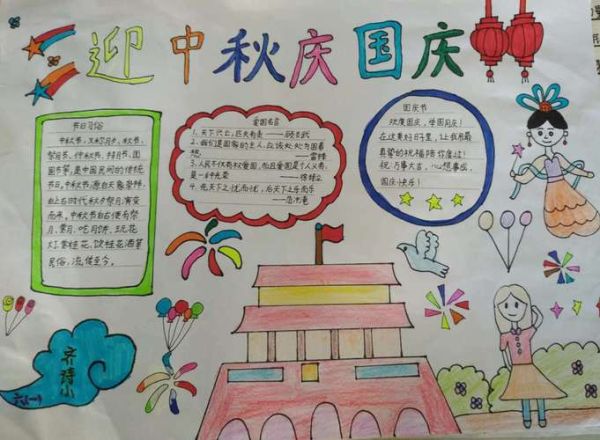 迎中秋庆国庆
节日习俗
中秋节，又称
祭月节、仲秋节、拜月节、团
圆节等，是中国民间的传统
节日。中秋节源自天象崇拜，
由上古时代秋夕祭月演变
而来。中秋节自古便有祭
月、赏月、吃月饼、玩花
灯、赏桂花、饮桂花酒等
民俗，流传至今。
爱国名言
1、天下兴亡，匹夫有责 ——顾炎武
2、我们是国家的主人，应该处处为国着
想。——雷锋
3、人民不仅有权爱国，而且爱国是个义务，
是一种光荣 ——徐特立
4、先天下之忧而忧，后天下之乐而乐
——范仲淹
国庆节
欢度国庆，举国同庆！
在这美好日子里，让我用最
真挚的祝福陪你度过！
祝：万事大吉，心想事成，
国庆快乐！
六(一)